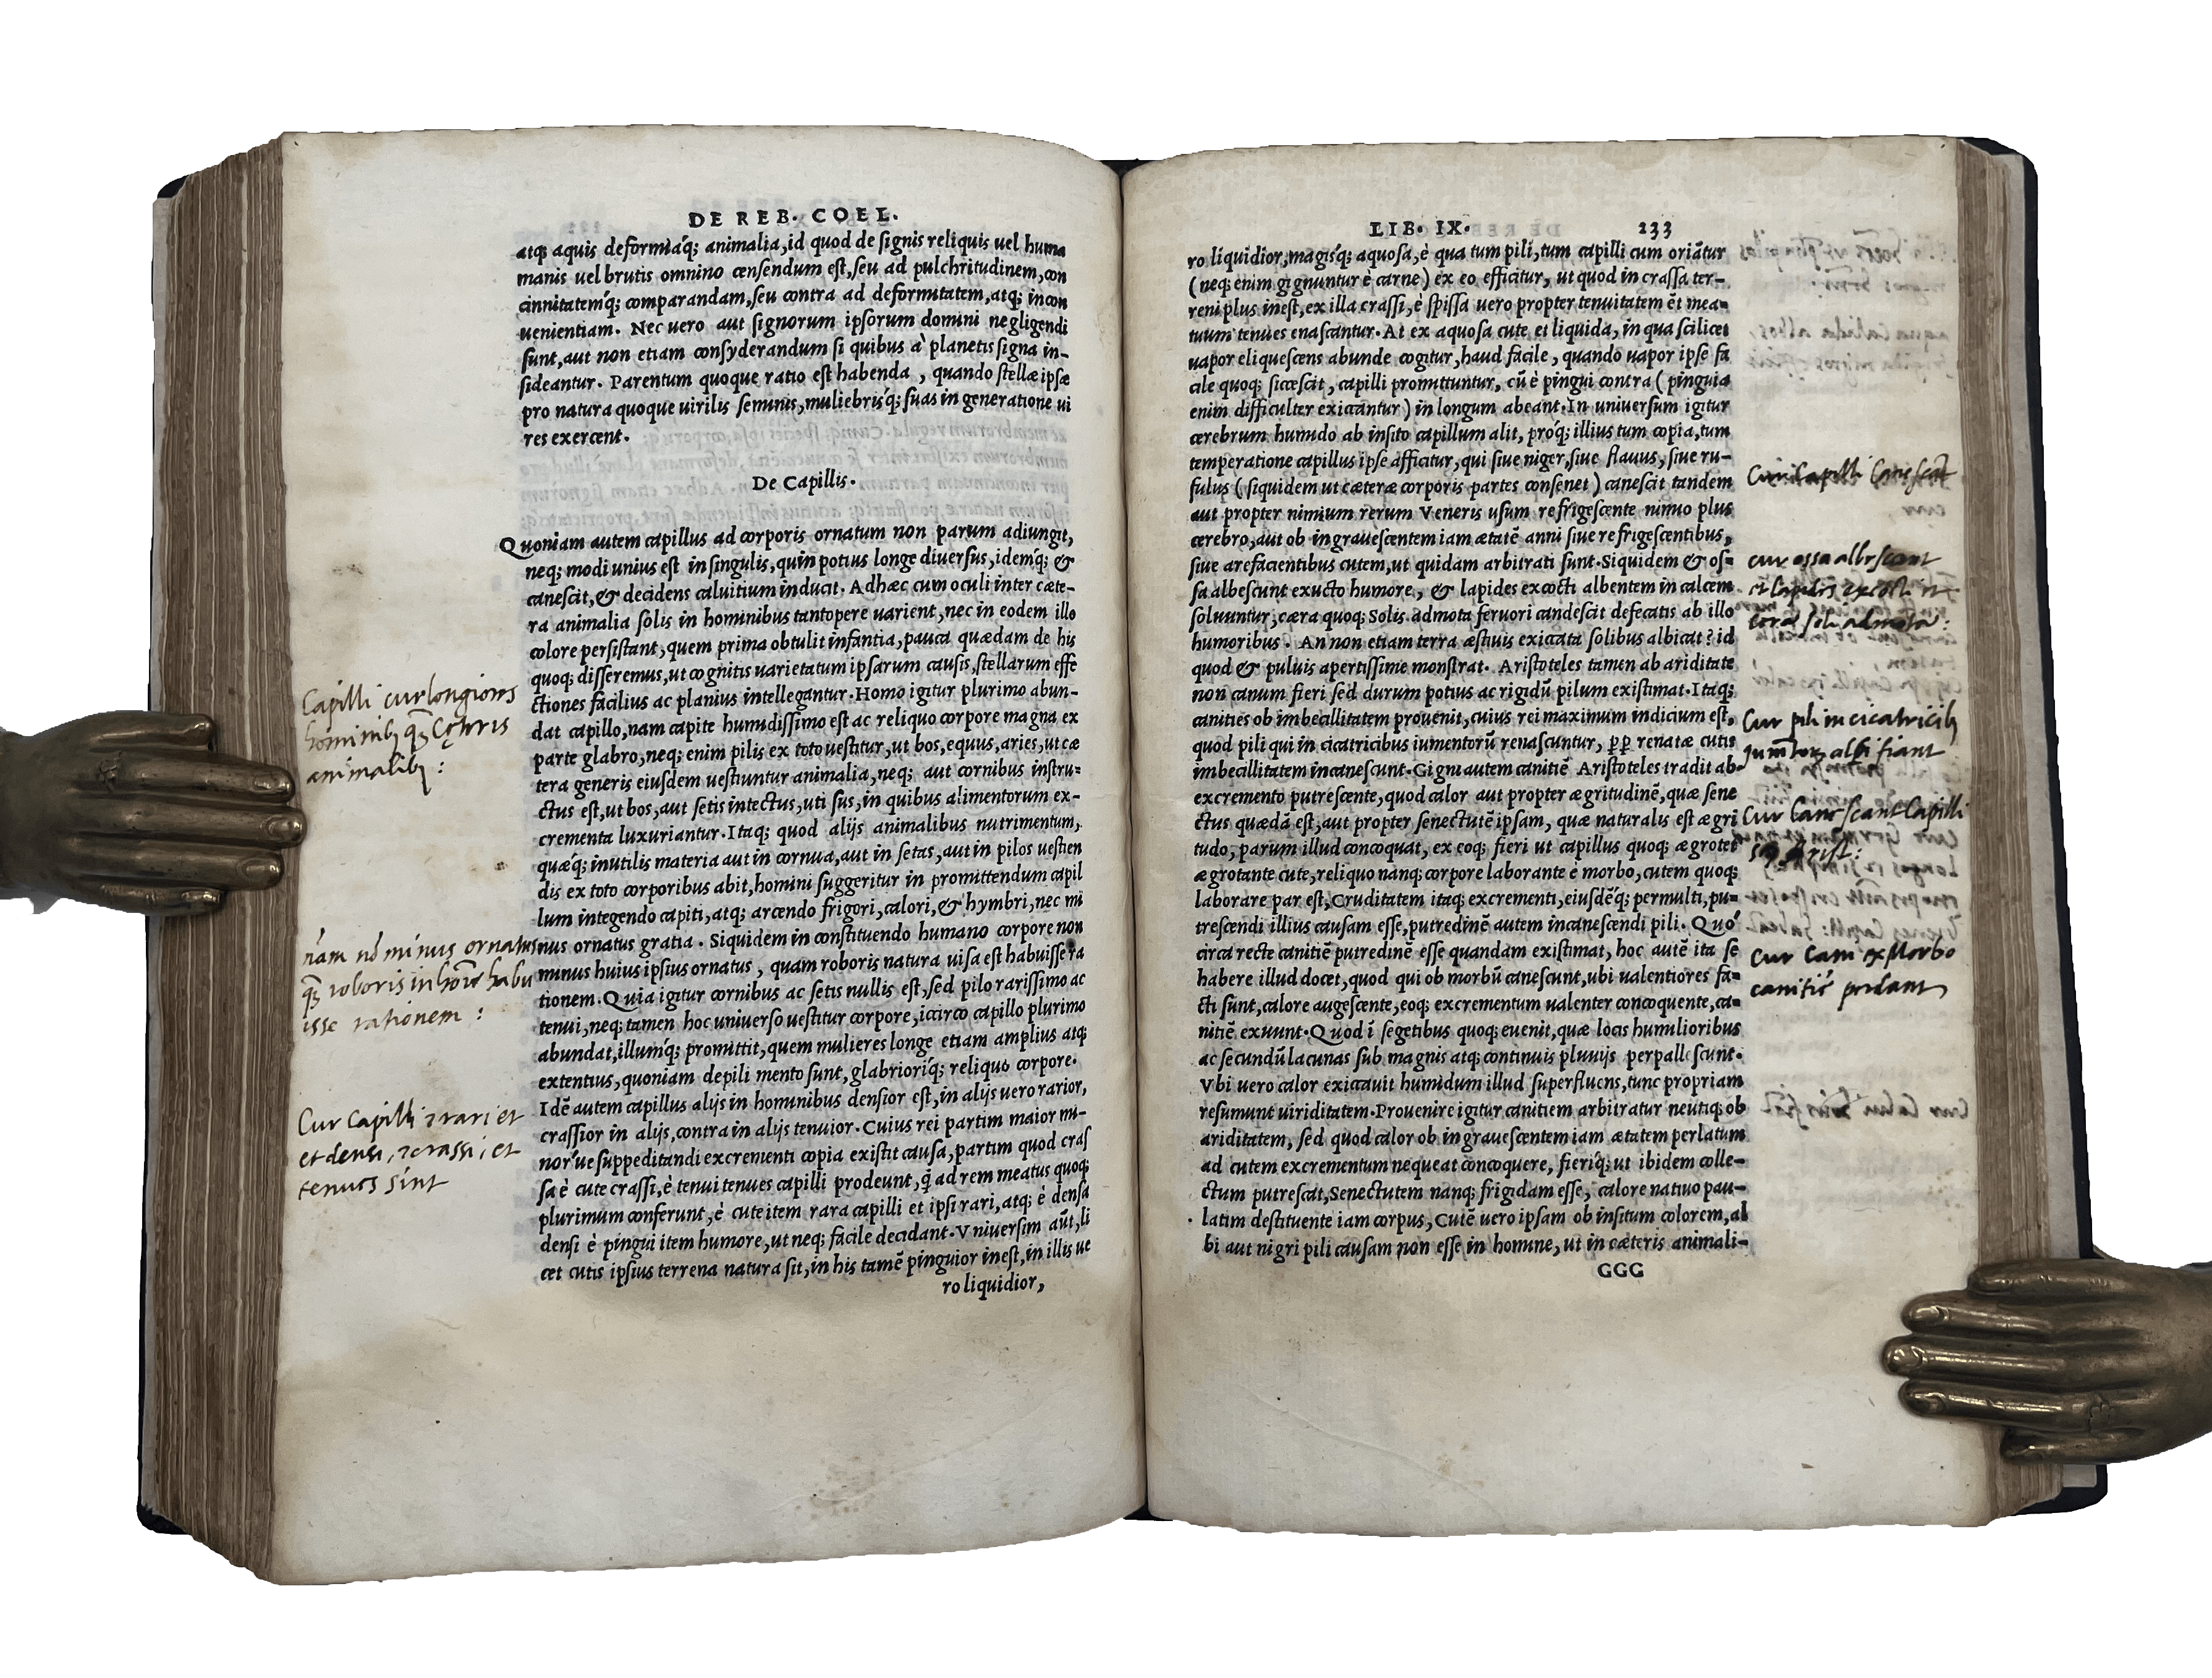 DE REB. COEL.
atq; aquis deformiaq́; animalia, id quod de signis reliquis uel huma
manis uel brutis omnino censendum est, seu ad pulchritudinem, con
cinnitatemq́; comparandam, seu contra ad deformitatem, atq; incon
uenientiam. Nec uero aut signorum ipsorum domini negligendi
sunt, aut non etiam consyderandum si quibus à planetis signa in-
sideantur. Parentum quoque ratio est habenda, quando stellæ ipsæ
pro natura quoque uirilis seminis, muliebrisq́; suas in generatione ui
res exercent.
De Capillis.
Quoniam autem capillus ad corporis ornatum non parum adiungit,
neq; modi unius est in singulis, quin potius longe diuersus, idemq́; &
canescit, & decidens caluitium inducit. Ad hæc cum oculi inter cæte-
ra animalia solis in hominibus tantopere uarient, nec in eodem illo
colore persistant, quem prima obtulit infantia, pauca quædam de his
quoq; disseremus, ut cognitis uarietatum ipsarum causis, stellarum effe
ctiones facilius ac planius intellegantur. Homo igitur plurimo abun-
dat capillo, nam capite humidissimo est ac reliquo corpore magna ex
parte glabro, neq; enim pilis ex toto uestitur, ut bos, equus, aries, ut cæ
tera generis eiusdem uestiuntur animalia, neq; aut cornibus instru-
ctus est, ut bos, aut setis intectus, uti sus, in quibus alimentorum ex-
crementa luxuriantur. Itaq; quod alijs animalibus nutrimentum,
quæq́; inutilis materia aut in cornua, aut in setas, aut in pilos uestien
dis ex toto corporibus abit, homini suggeritur in promittendum capil
lum integendo capiti, atq; arcendo frigori, calori, & hymbri, nec mi
nus ornatus gratia. Siquidem in constituendo humano corpore non
minus huius ipsius ornatus, quam roboris natura uisa est habuisse ra
tionem. Quia igitur cornibus ac setis nullis est, sed pilo rarissimo ac
tenui, neq; tamen hoc uniuerso uestitur corpore, icirco capillo plurimo
abundat, illumq́; promittit, quem mulieres longe etiam amplius atq;
extentius, quoniam depili mento sunt, glabrioriq́; reliquo corpore.
Idē autem capillus alijs in hominibus densior est, in alijs uero rarior,
crassior in alijs, contra in alijs tenuior. Cuius rei partim maior mi-
nor'ue suppeditandi excrementi copia existit causa, partim quod cras
sa è cute crassi, è tenui tenues capilli prodeunt, q̃ ad rem meatus quoq;
plurimum conferunt, è cute item rara capilli et ipsi rari, atq; è densa
densi è pingui item humore, ut neq; facile decidant. Vniuersim aūt, li
cet cutis ipsius terrena natura sit, in his tamē pinguior inest, in illis ue
ro liquidior,
Capilli cur longiores
hominib; q̃ Cęteris
animalib; :
nam nō minus ornatus
q̃ roboris in hōie habu
isse rationem :
Cur Capilli rari et
et densi, crassi, et
tenues sint
LIB. IX. 233
ro liquidior, magisq́; aquosa, è qua tum pili, tum capilli cum oriātur
(neq; enim gignuntur è carne) ex eo efficitur, ut quod in crassa ter-
reni plus inest, ex illa crassi, è spissa uero propter tenuitatem ēt mea-
tuum tenues enascantur. At ex aquosa cute et liquida, in qua scilicet
uapor eliquescens abunde cogitur, haud facile, quando uapor ipse fa
cile quoq; siccescit, capilli promittuntur, cū è pingui contra (pinguia
enim difficulter exiccantur) in longum abeant. In uniuersum igitur
cerebrum humido ab insito capillum alit, proq́; illius tum copia, tum
temperatione capillus ipse afficitur, qui siue niger, siue flauus, siue ru-
fulus (siquidem ut cæteræ corporis partes consenet) canescit tandem
aut propter nimium rerum Veneris usum refrigescente nimio plus
cerebro, aut ob ingrauescentem iam ætatē anni siue refrigescentibus,
siue arefacientibus cutem, ut quidam arbitrati sunt. Siquidem & os-
sa albescunt exucto humore, & lapides excocti albentem in calcem
soluuntur, cæra quoq; Solis admota feruori candescit defecatis ab illo
humoribus. An non etiam terra æstiuis exiccata solibus albicat? id
quod & puluis apertissime monstrat. Aristoteles tamen ab ariditate
non canum fieri sed durum potius ac rigidū pilum existimat. Itaq;
canities ob imbecillitatem prouenit, cuius rei maximum indicium est,
quod pili qui in cicatricibus iumentorū renascuntur, ꝓꝑ renatæ cutis
imbecillitatem incanescunt. Gigni autem canitiē Aristoteles tradit ab
excremento putrescente, quod calor aut propter ægritudinē, quæ sene
ctus quædā est, aut propter senectutē ipsam, quæ naturalis est ægri
tudo, parum illud concoquat, ex eoq; fieri ut capillus quoq; ægrotet
ægrotante cute, reliquo nanq; corpore laborante è morbo, cutem quoq;
laborare par est, Cruditatem itaq; excrementi, eiusdēq́; permulti, pu-
trescendi illius causam esse, putredinē autem incanescendi pili. Quo
circa recte canitiē putredinē esse quandam existimat, hoc autē ita se
habere illud docet, quod qui ob morbū canescunt, ubi ualentiores fa-
cti sunt, calore augescente, eoq; excrementum ualenter concoquente, ca-
nitiē exuunt. Quod ī segetibus quoq; euenit, quæ locis humilioribus
ac secundū lacunas sub magnis atq; continuis pluuijs perpallescunt.
Vbi uero calor exiccauit humidum illud superfluens, tunc propriam
resumunt uiriditatem. Prouenire igitur canitiem arbitratur neutiq; ob
ariditatem, sed quod calor ob ingrauescentem iam ætatem perlatum
ad cutem excrementum nequeat concoquere, fieriq́; ut ibidem colle-
ctum putrescat, Senectutem nanq; frigidam esse, calore natiuo pau-
latim destituente iam corpus, Cutē uero ipsam ob insitum colorem, al
bi aut nigri pili causam non esse in homine, ut in cæteris animali-
GGG
Cur Capilli Canescāt
cur ossa albescant
et lapides excocti et
cera soli admota:
Cur pili in cicatricib;
Jumētor; albi fiant
Cur Canescant Capilli
Arist:
Cur Cani ex Morbo
canitiē perdant